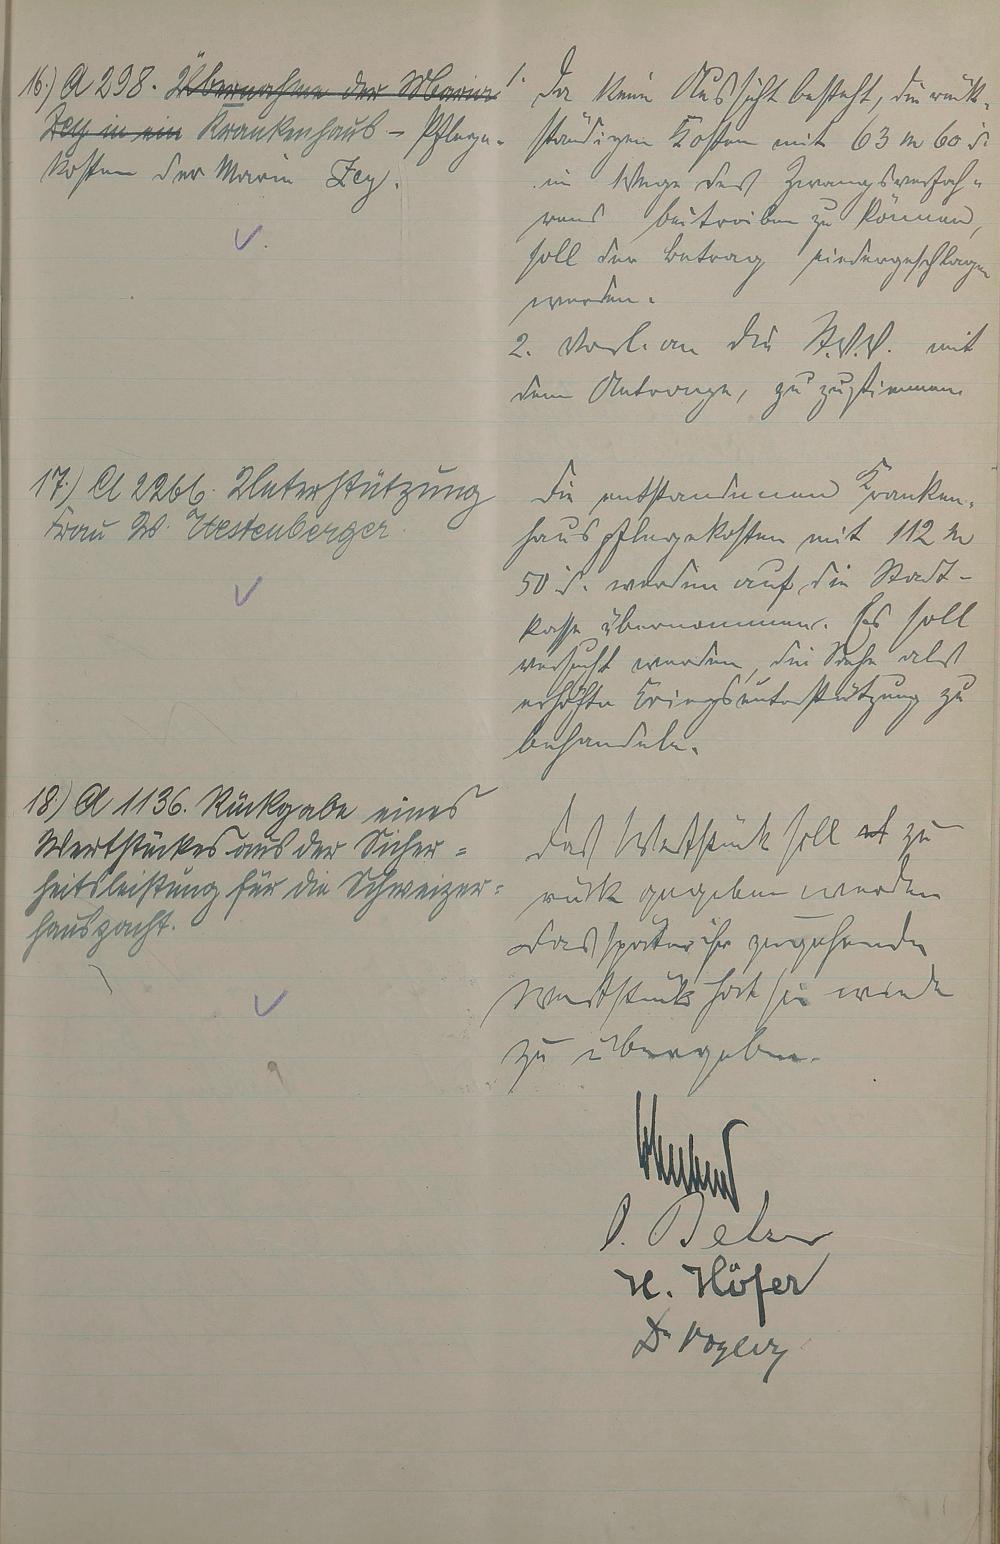 16.) A 298. Übernahme der Maria
Zey in ein Krankenhaus- Pflege-
kosten der Maria Zey.
1. Da keine Aussicht besteht, die rück-
ständigen Kosten mit 63 M 60 d.
im Wege des Zwangsverfah-
rens beitreiben zu können,
soll der Betrag niedergeschlagen
werden.
2. Vorl. an die St.V.V. mit
dem Antrage, zuzustimmen.
17.) A 2266. Unterstützung
Frau W. Westenberger.
Die entstandenen Kranken-
hauspflegekosten mit 112 M
50 d. werden auf die Stadt-
kasse übernommen. Es soll
versucht werden, die Sache als
erhöhte Kriegsunterstützung zu
behandeln.
18) A 1136. Rückgabe eines
Wertstückes aus der Sicher-
heitsleistung für die Schweizer-
hauspacht.
Das Wertstück soll zu
rück gegeben werden
das später ihr zugehende
Wertstück hat sie wieder
zu übergeben.
H. Höfer
Dr